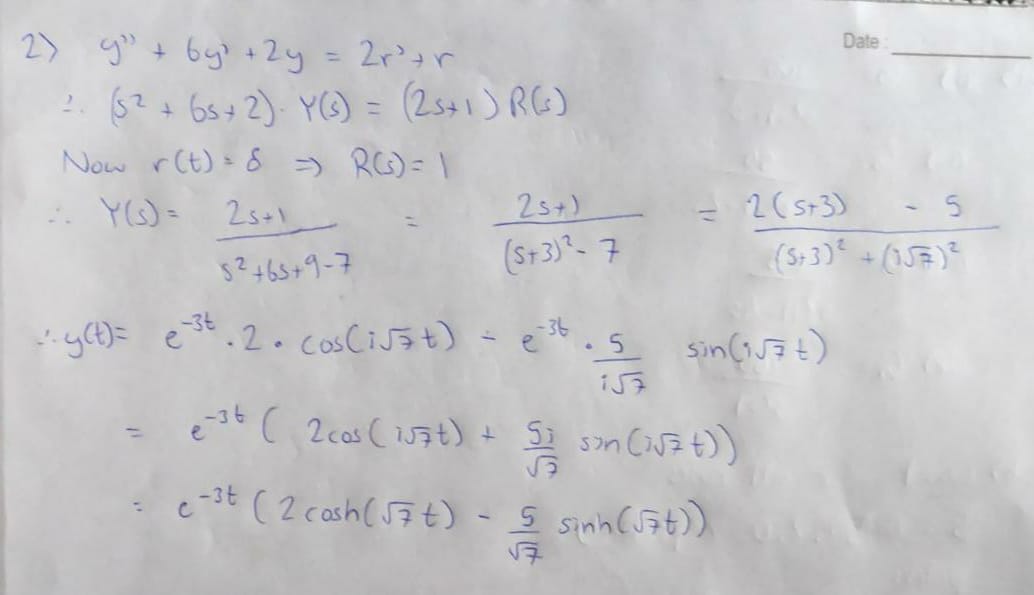 Date :
2) y'' + 6y' + 2y = 2r' + r
∴ (s² + 6s + 2). Y(s) = (2s+1) R(s)
Now r(t) = δ ⇒ R(s) = 1
∴ Y(s) = (2s+1)/(s²+6s+9-7) = (2s+1)/((s+3)² - 7) = (2(s+3) - 5)/((s+3)² + (i√7)²)
∴ y(t) = e^(-3t) . 2 . cos(i√7t) - e^(-3t) . 5/(i√7) sin(i√7 t)
= e^(-3t) ( 2cos(i√7t) + 5i/√7 sin(i√7 t))
= e^(-3t) (2 cosh(√7t) - 5/√7 sinh(√7t))